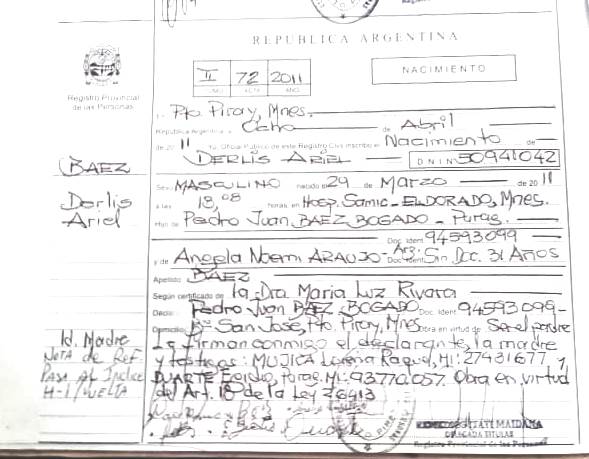 REPUBLICA ARGENTINA
II 72 2011
TOMO ACTA AÑO
NACIMIENTO
Registro Provincial
de las Personas
BAEZ
Derlis
Ariel
En Pto. Piray, Mnes.
República Argentina a Ocho de Abril
de 20 11 Yo, Oficial Público de este Registro Civil inscribo el Nacimiento de
DERLIS ARIEL D N I N 50941042
Sexo MASCULINO nacido el 29 de Marzo de 20 11
a las 18,08 horas, en Hosp. Samic - ELDORADO, Mnes.
Hijo de Pedro Juan BAEZ BOGADO - Parag.
Doc. Ident 94593099
y de Angela Noemi ARAUJO - Arg. Doc. Ident. Sin Doc. 31 Años
Apellido BAEZ
Según certificado de la Dra Maria Luz Rivara
Declara Pedro Juan BAEZ BOGADO Doc. Ident 94593099-
Domicilio Bº San José, Pto. Piray, Mnes Obra en virtud de Ser el padre
Le firman conmigo el declarante, la madre
y testigos: MUJICA Lorena Raquel, MI: 27431677 y
DUARTE Egidio, Parag. MI: 93770057. Obra en virtud
del Art. 18 de la Ley 26413
Id. Madre
Nota de Ref.
Pasa al Indice
H-1/VUELTA
MAIDANA
DELEGADA TITULAR
Registro Provincial de las Personas